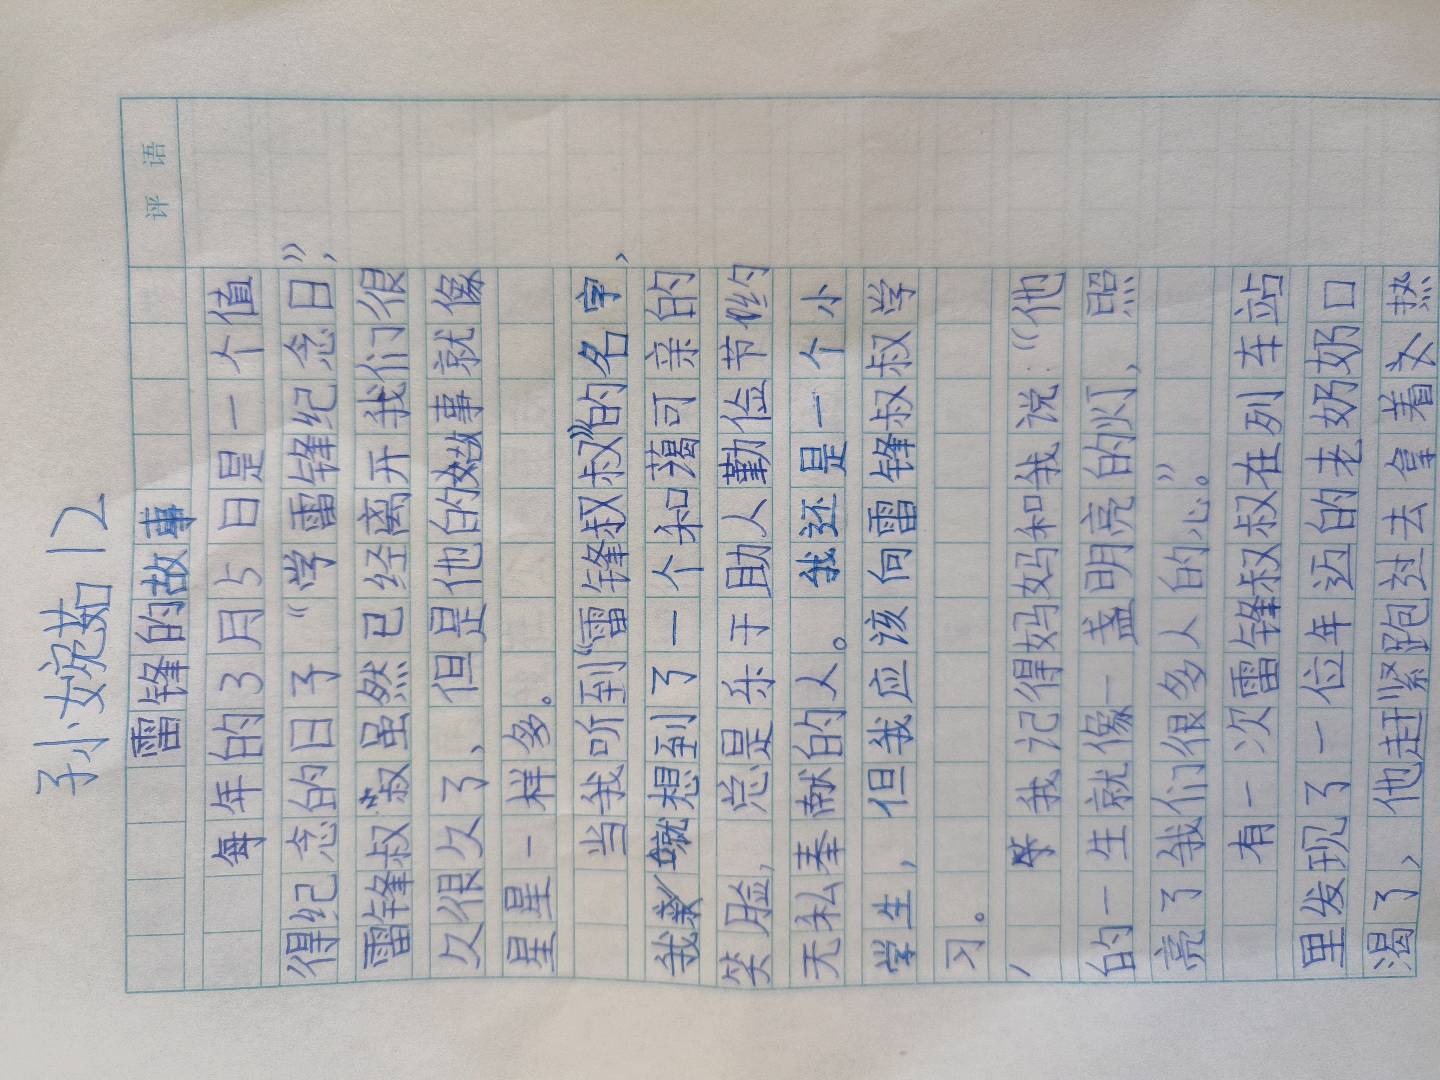 孙婉茹12
评 语
雷锋的故事
每年的3月5日是一个值
得纪念的日子“学雷锋纪念日”，
雷锋叔叔虽然已经离开我们很
久很久了，但是他的故事就像
星星一样多。
当我听到“雷锋叔叔”的名字，
我就想到了一个和蔼可亲的
笑脸，总是乐于助人勤俭节约
无私奉献的人。我还是一个小
学生，但我应该向雷锋叔叔学
习。
我记得妈妈和我说：“他
的一生就像一盏明亮的灯，照
亮了我们很多人的心。”
有一次雷锋叔叔在列车站
里发现了一位年迈的老奶奶口
渴了，他赶紧跑过去拿着热